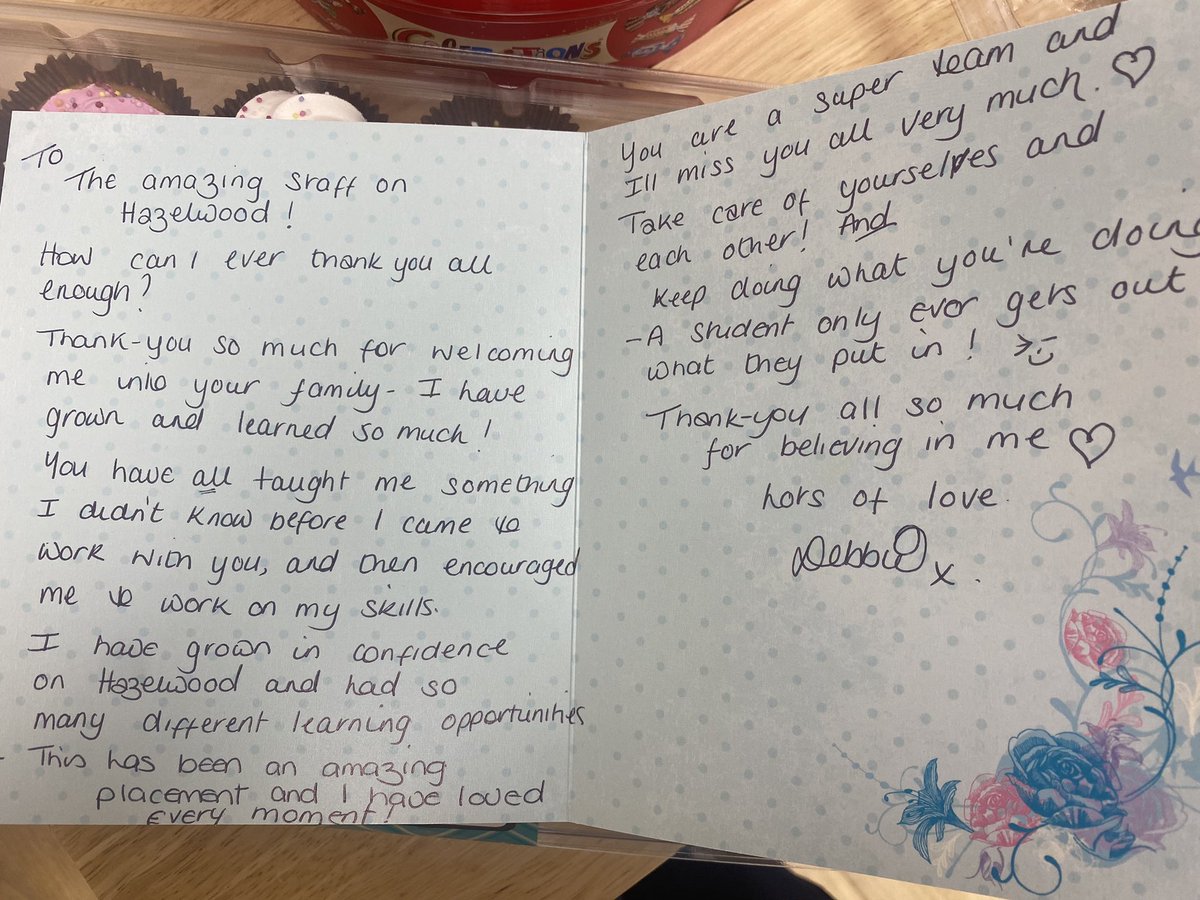 CELEBRATIONS
To
The amazing Staff on
Hazelwood!
How can I ever thank you all
enough?
Thank-you so much for welcoming
me into your family - I have
grown and learned so much!
You have all taught me something
I didn't know before I came to
work with you, and then encouraged
me to work on my skills.
I have grown in confidence
on Hazelwood and had so
many different learning opportunities
- This has been an amazing
placement and I have loved
every moment!
You are a super team and
Ill miss you all very much. ♡
Take care of yourselves and
each other! And
keep doing what you're doing
- A student only ever gets out
what they put in!
Thank-you all so much
for believing in me ♡
hots of love.
Debbie x.